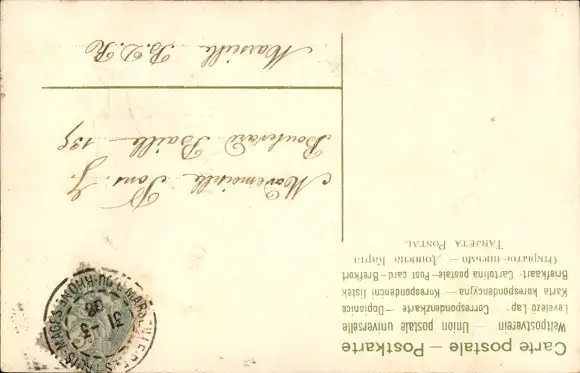 Carte postale – Postkarte
Weltpostverein – Union postale universelle
Levelező Lap – Correspondenzkarte – Dopisnice
Karta korespondencyjna – Korespondenční lístek
Briefkaart - Cartolina postale - Post card - Brefkort
Открытое письмо –
TARJETA POSTAL
Mademoiselle Pons. G.
Boulevard Baille
Marseille B. D. R